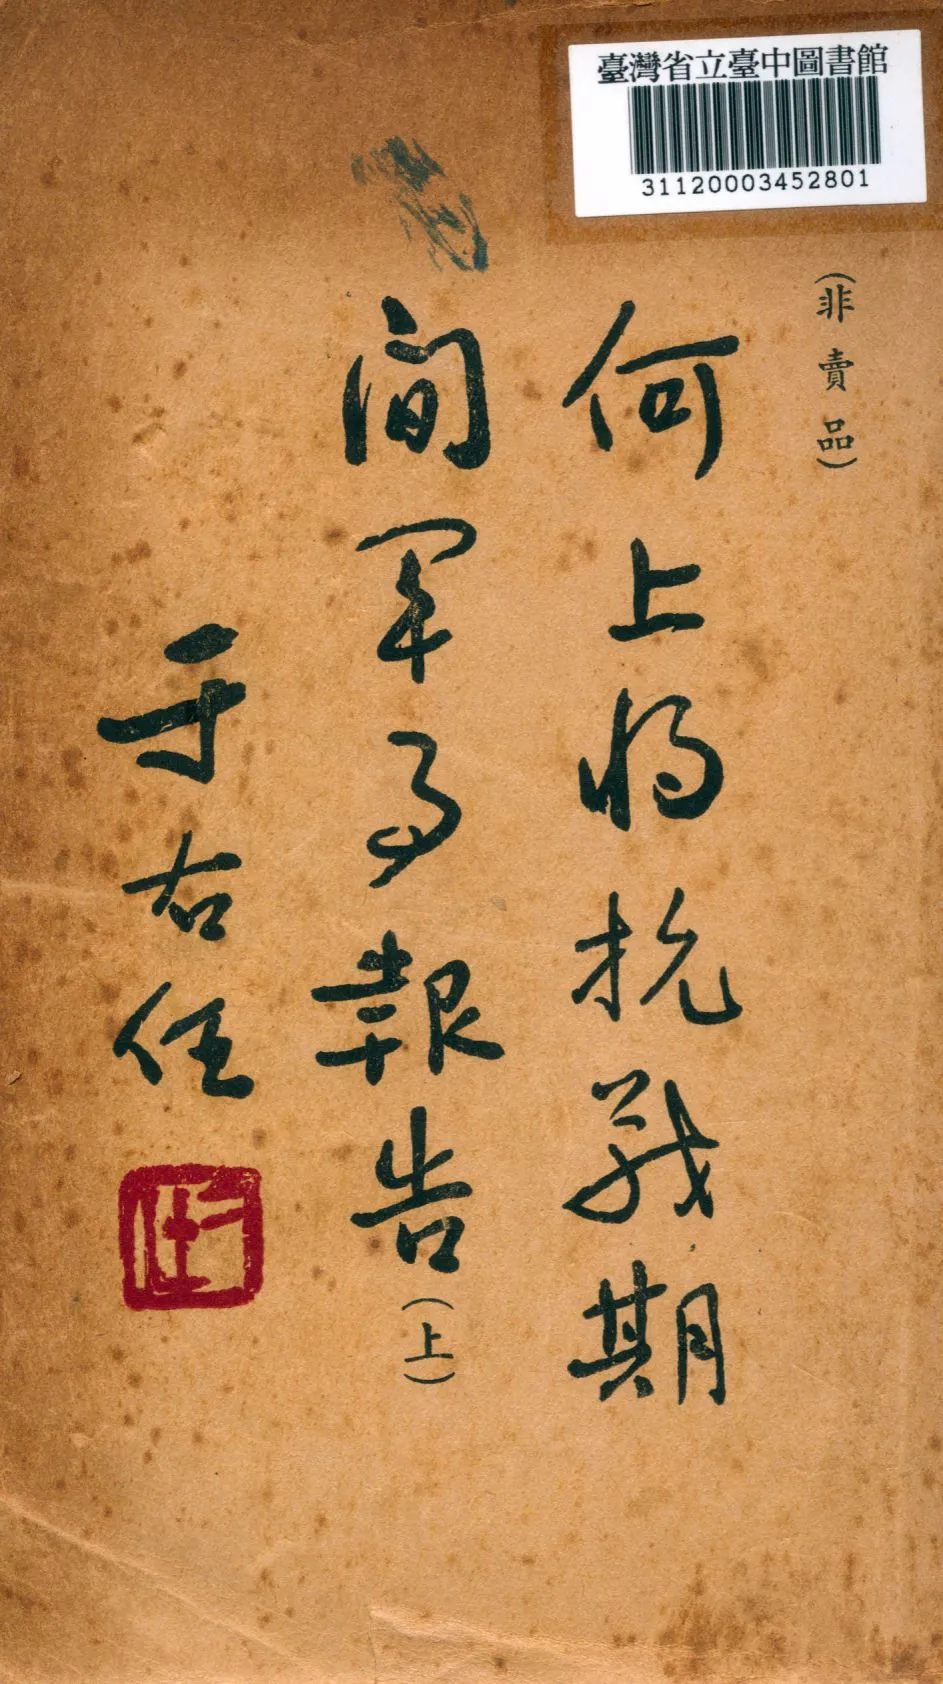 臺灣省立臺中圖書館
31120003452801
(非賣品)
何上將抗戰期
間軍事報告(上)
于右任